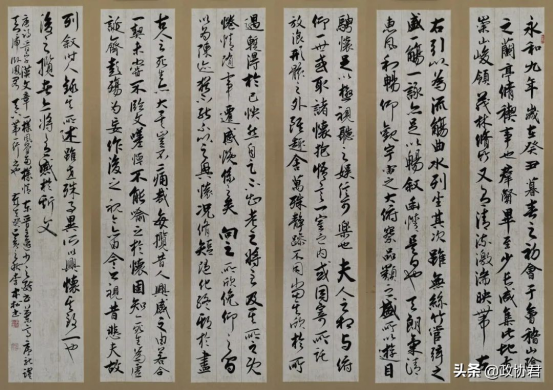 永和九年歲在癸丑暮春之初會于會稽山陰
之蘭亭脩稧事也群賢畢至少長咸集此地有
崇山峻領茂林脩竹又有清流激湍映帶左
右引以為流觴曲水列坐其次雖無絲竹管弦之
盛一觴一詠亦足以暢叙幽情是日也天朗氣清
惠風和暢仰觀宇宙之大俯察品類之盛所以遊目
騁懷足以極視聽之娛信可樂也夫人之相與俯
仰一世或取諸懷抱悟言一室之內或因寄所託
放浪形骸之外雖趣舍萬殊靜躁不同當其欣於所
遇暫得於己快然自足不知老之將至及其所之既
惓情隨事遷感慨係之矣向之所欣俛仰之間
以為陳迹猶不能不以之興懷況脩短隨化終期於盡
古人云死生亦大矣豈不痛哉每攬昔人興感之由若合
一契未嘗不臨文嗟悼不能喻之於懷固知一死生為虛
誕齊彭殤為妄作後之視今亦由今之視昔悲夫故
列叙時人錄其所述雖世殊事異所以興懷其致一也
後之攬者亦將有感於斯文
头条 @政协君